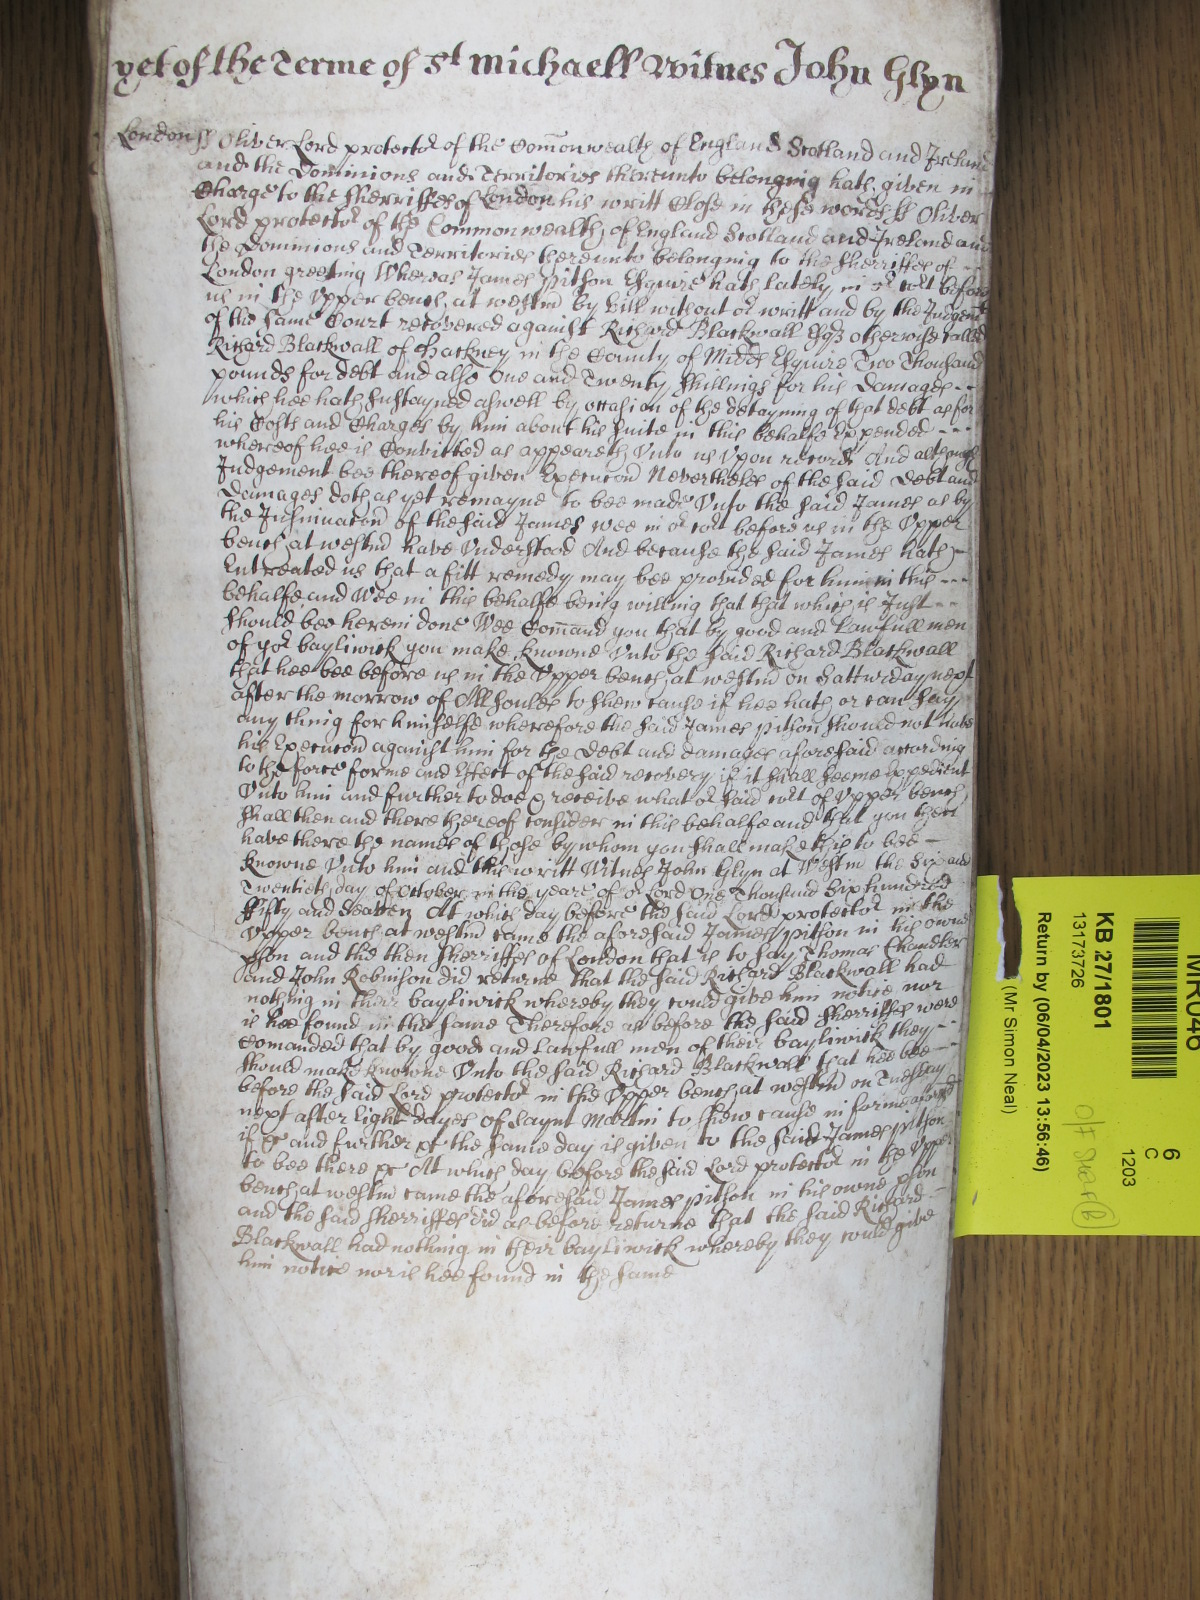 yet of the Terme of St Michaell Witnes John Glyn
London ss Oliver Lord protector of the Comonwealth of England Scotland and Ireland
and the Dominions and Territories thereunto belonging hath given in
Charge to the Sherriffes of London his writt Close in these words ss Oliver
Lord protector of the Commonwealth of England Scotland and Ireland and
the Dominions and Territories thereunto belonging to the Sherriffes of --
London greeting Whereas James Pitson Esquire hath lately in or Cort before
us in the Upper bench at westm by bill without or writt and by the Judgemt
of the same Court recovered against Richard Blackwall Esq otherwise called
Richard Blackwall of Hackney in the County of Midd Esquire Two Thousand
pounds for debt and also One and Twenty shillings for his Damages --
which hee hath sustayned aswell by occasion of the detayning of that debt as for
his Costs and Charges by him about his suite in this behalfe Expended ---
whereof hee is Convicted as appeareth Unto us Upon record And although
Judgement bee thereof given Execucon Neverthelesse of the said Debt and
Damages doth as yet remayne to bee made Unto the said James as by
the Insinuacon of the said James wee in or Cort before us in the Upper
bench at westm have Understood And because the said James hath -
Entreated us that a fitt remedy may bee provided for him in this ---
behalfe and Wee in this behalfe being willing that that which is Just --
should bee herein done Wee Comand you that by good and Lawfull men
of yor bayliwick you make knowne Unto the said Richard Blackwall
that hee bee before us in the Upper bench at westm on Satturday next
after the morrow of All soules to shew cause if hee hath or can say
any thing for himselfe wherefore the said James Pitson should not have
his Execucon against him for the Debt and damages aforesaid according
to the force forme and Effect of the said recovery if it shall seeme Expedient
Unto him and further to doe & receive what or said Cort of Upper bench
shall then and there thereof consider in this behalfe and that you then
have there the names of those by whom you shall make this to bee -
knowne Unto him and this writt Witnes John Glyn at Westm the Six and
Twentieth day of October in the yeare of or Lord One Thousand Six hundred
Fifty and Seaven At which day before the said Lord protector in the
Upper bench at westm came the aforesaid James Pitson in his owne
pson and the then Sherriffes of London that is to say Thomas Chandler
and John Robinson did returne that the said Richard Blackwall had
nothing in their bayliwick whereby they could give him notice nor
is hee found in the same Therefore as before the said Sherriffes were
Comanded that by good and Lawfull men of their bayliwick they --
should make knowne Unto the said Richard Blackwall that hee bee -
before the said Lord protector in the Upper bench at westm on Tuesday
next after Eight dayes of Saynt Martin to shew cause in forme aforesd
if &c and further &c the same day is given to the said James Pitson
to bee there &c At which day before the said Lord protector in the Upper
bench at westm came the aforesaid James Pitson in his owne pson
and the said Sherriffes did as before returne that the said Richard --
Blackwall had nothing in their bayliwick whereby they could give
him notice nor is hee found in the same
MR046
6
C
1203
KB 27/1801
13173726
Return by (06/04/2023 13:56:46)
(Mr Simon Neal)